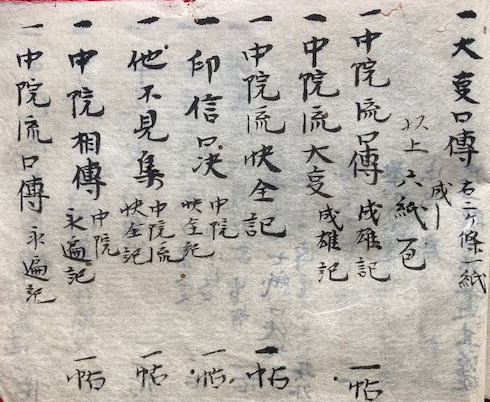 一大叓口傳 右二ヶ條一紙
以上六紙
一中院流口傳 成雄記 一帖
一中院流大叓 成雄記
一中院流快全記 一帖
一印信口决 中院 快全記 一帖
一他不見集 中院流 快全記 一帖
一中院相傳 中院 永遍記 一帖
一中院流口傳 永遍記